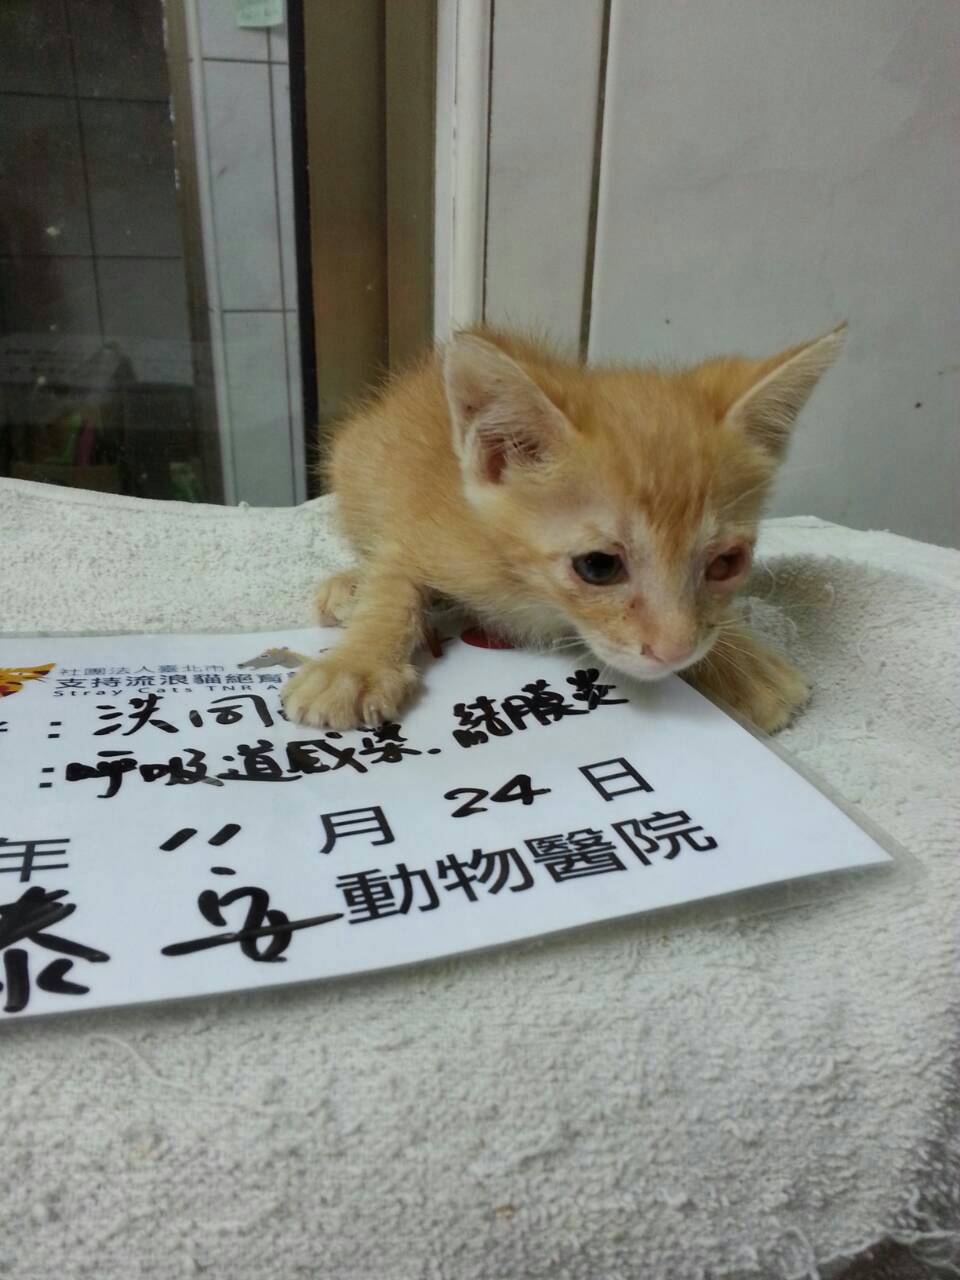 社團法人臺北市
支持流浪貓絕育
Stray Cats TNR A
: 洪同
: 呼吸道感染. 結膜炎
年 11 月 24 日
泰安動物醫院